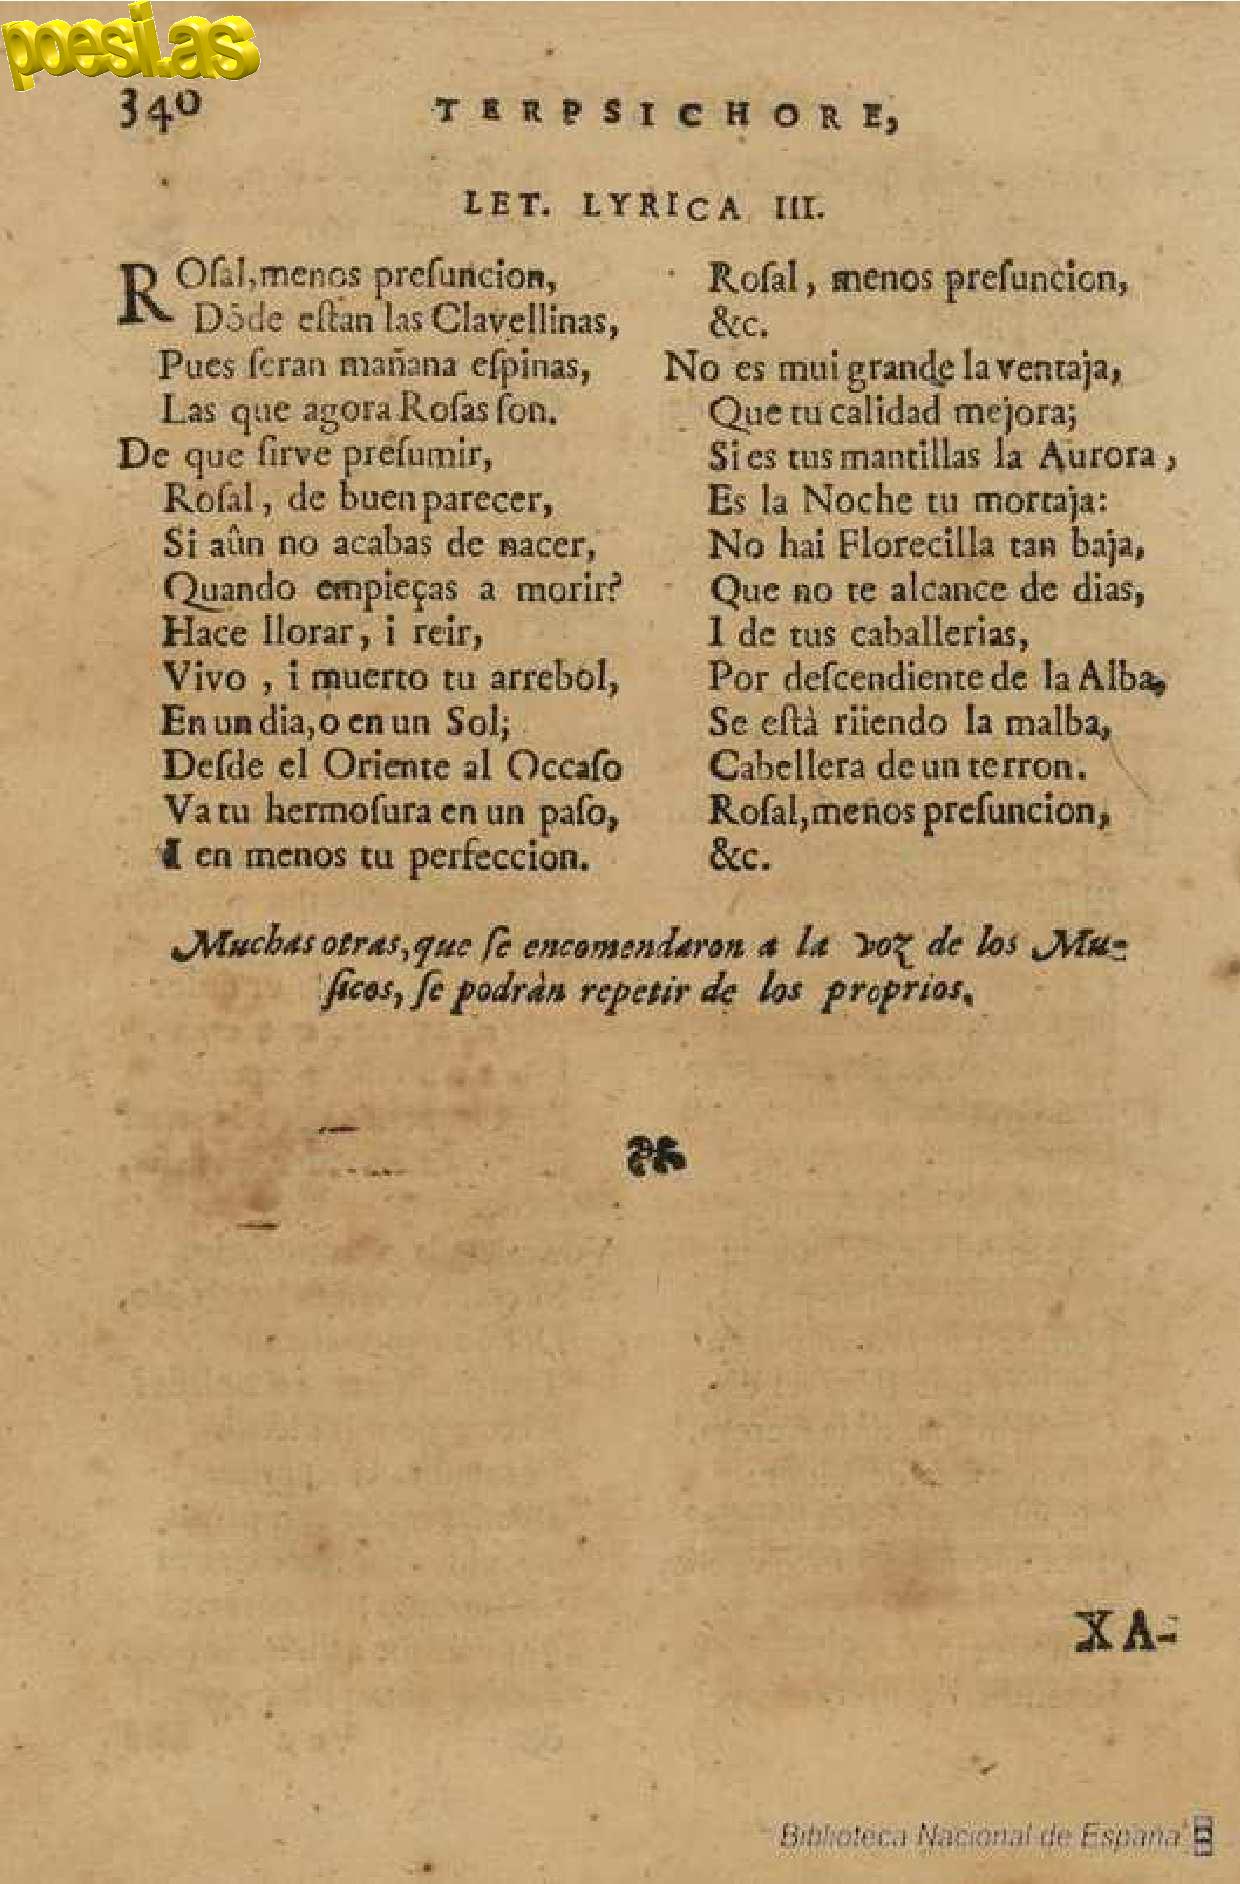 poesi.as
340
TERPSICHORE,
LET. LYRICA III.
ROſal, menos preſuncion,
Dõde eſtan las Clavellinas,
Pues ſeran mañana eſpinas,
Las que agora Roſas ſon.
De que ſirve preſumir,
Roſal, de buen parecer,
Si aûn no acabas de nacer,
Quando empieças a morir?
Hace llorar, i reir,
Vivo, i muerto tu arrebol,
En un dia, o en un Sol;
Deſde el Oriente al Occaſo
Va tu hermoſura en un paſo,
I en menos tu perfeccion.
Roſal, menos preſuncion,
&c.
No es mui grande la ventaja,
Que tu calidad mejora;
Si es tus mantillas la Aurora,
Es la Noche tu mortaja:
No hai Florecilla tan baja,
Que no te alcance de dias,
I de tus caballerias,
Por deſcendiente de la Alba,
Se eſtà riiendo la malba,
Cabellera de un terron.
Roſal, menos preſuncion,
&c.
Muchas otras, que ſe encomendaron a la voz de los Mu-
ſicos, ſe podràn repetir de los proprios.
XA-
Biblioteca Nacional de España